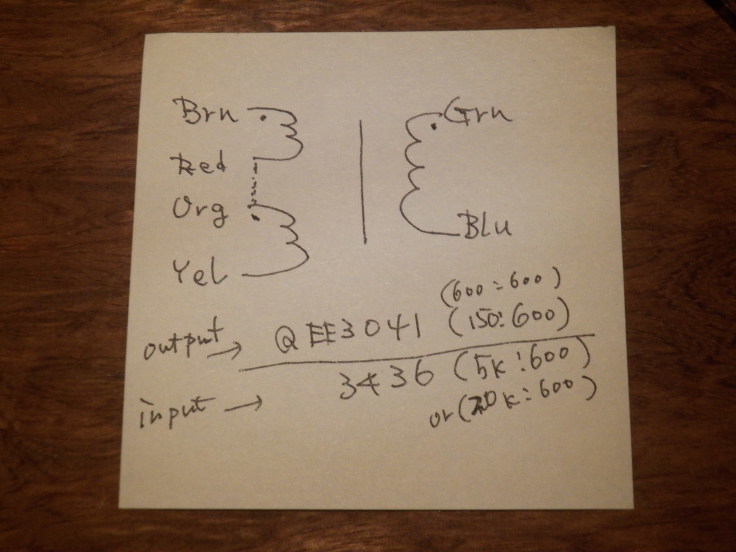 Brn
Grn
Red
Org
Yel
Blu
(600:600)
output → QEE3041 (150:600)
input → 3436 (5k:600)
or (20k:600)